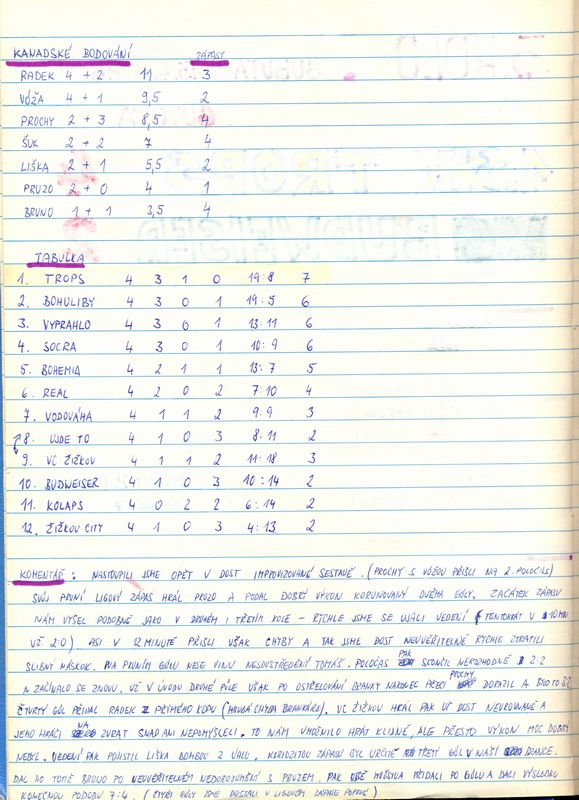 KANADSKÉ BODOVÁNÍ ZÁPASY
RADEK 4 + 2 11 3
VÓŽA 4 + 1 9,5 2
PROCHY 2 + 3 8,5 4
ŠUK 2 + 2 7 4
LIŠKA 2 + 1 5,5 2
PRUZO 2 + 0 4 1
BRUNO 1 + 1 3,5 4
TABULKA
1. TROPS 4 3 1 0 19:8 7
2. BOHULIBY 4 3 0 1 19:5 6
3. VYPRAHLO 4 3 0 1 13:11 6
4. SOCRA 4 3 0 1 10:9 6
5. BOHEMIA 4 2 1 1 13:7 5
6. REAL 4 2 0 2 7:10 4
7. VODOVÁHA 4 1 1 2 9:9 3
8. UJDE TO 4 1 0 3 8:11 2
9. VC ŽIŽKOV 4 1 1 2 11:18 3
10. BUDWEISER 4 1 0 3 10:14 2
11. KOLAPS 4 0 2 2 6:14 2
12. ŽIŽKOV CITY 4 1 0 3 4:13 2
KOMENTÁŘ: NASTOUPILI JSME OPĚT V DOST IMPROVIZOVANÉ SESTAVĚ. (PROCHY S VÓŽOU PŘIŠLI NA 2. POLOČAS)
SVŮJ PRVNÍ LIGOVÝ ZÁPAS HRÁL PRUZO A PODAL DOBRÝ VÝKON KORUNOVANÝ DVĚMA GÓLY. ZAČÁTEK ZÁPASU
NÁM VYŠEL PODOBNĚ JAKO V DRUHÉM I TŘETÍM KOLE - RYCHLE JSME SE UJALI VEDENÍ (TENTOKRÁT V 10 MIN
UŽ 2:0). ASI V 12 MINUTĚ PŘIŠLI VŠAK CHYBY A TAK JSME DOST NEUVĚŘITELNĚ RYCHLE ZTRATILI
SLIBNÝ NÁSKOK. NA PRVNÍM GÓLU NESE VINU NESOUSTŘEDĚNÍ TOMÁŠ. POLOČAS PAK SKONČIL NEROZHODNĚ 2:2
A ZAČÍNALO SE ZNOVU. UŽ V ÚVODU DRUHÉ PŮLE VŠAK PO OSTŘELOVÁNÍ BRANKY NAKONEC PŘECI PROCHY DORAZIL A BYLO TO 3:2
ČTVRTÝ GÓL PŘIDAL RADEK Z PŘÍMÉHO KOPU (HRUBÁ CHYBA BRANKÁŘE). VC ŽIŽKOV HRÁL PAK UŽ DOST NERVÓZNĚ A
JEHO HRÁČI NA ZVRAT SNAD ANI NEPOMÝŠLELI. TO NÁM UMOŽNILO HRÁT KLIDNĚ, ALE PŘESTO VÝKON MOC DOBRÝ
NEBYL. VEDENÍ PAK POJISTIL LIŠKA BOMBOU Z ÚHLU. KURIOZITOU ZÁPASU BYL URČITĚ TŘETÍ GÓL V NAŠÍ BRANCE.
DAL HO TOTIŽ BRUNO PO NEUVĚŘITELNÉM NEDOROZUMĚNÍ S PRUZEM. PAK OBĚ MUŽSTVA PŘIDALI PO GÓLU A DALI VÝSLEDKU
KONEČNOU PODOBU 7:4. (ČTYŘI GÓLY JSME DOSTALI V LIGOVÉM ZÁPASE POPRVÉ)